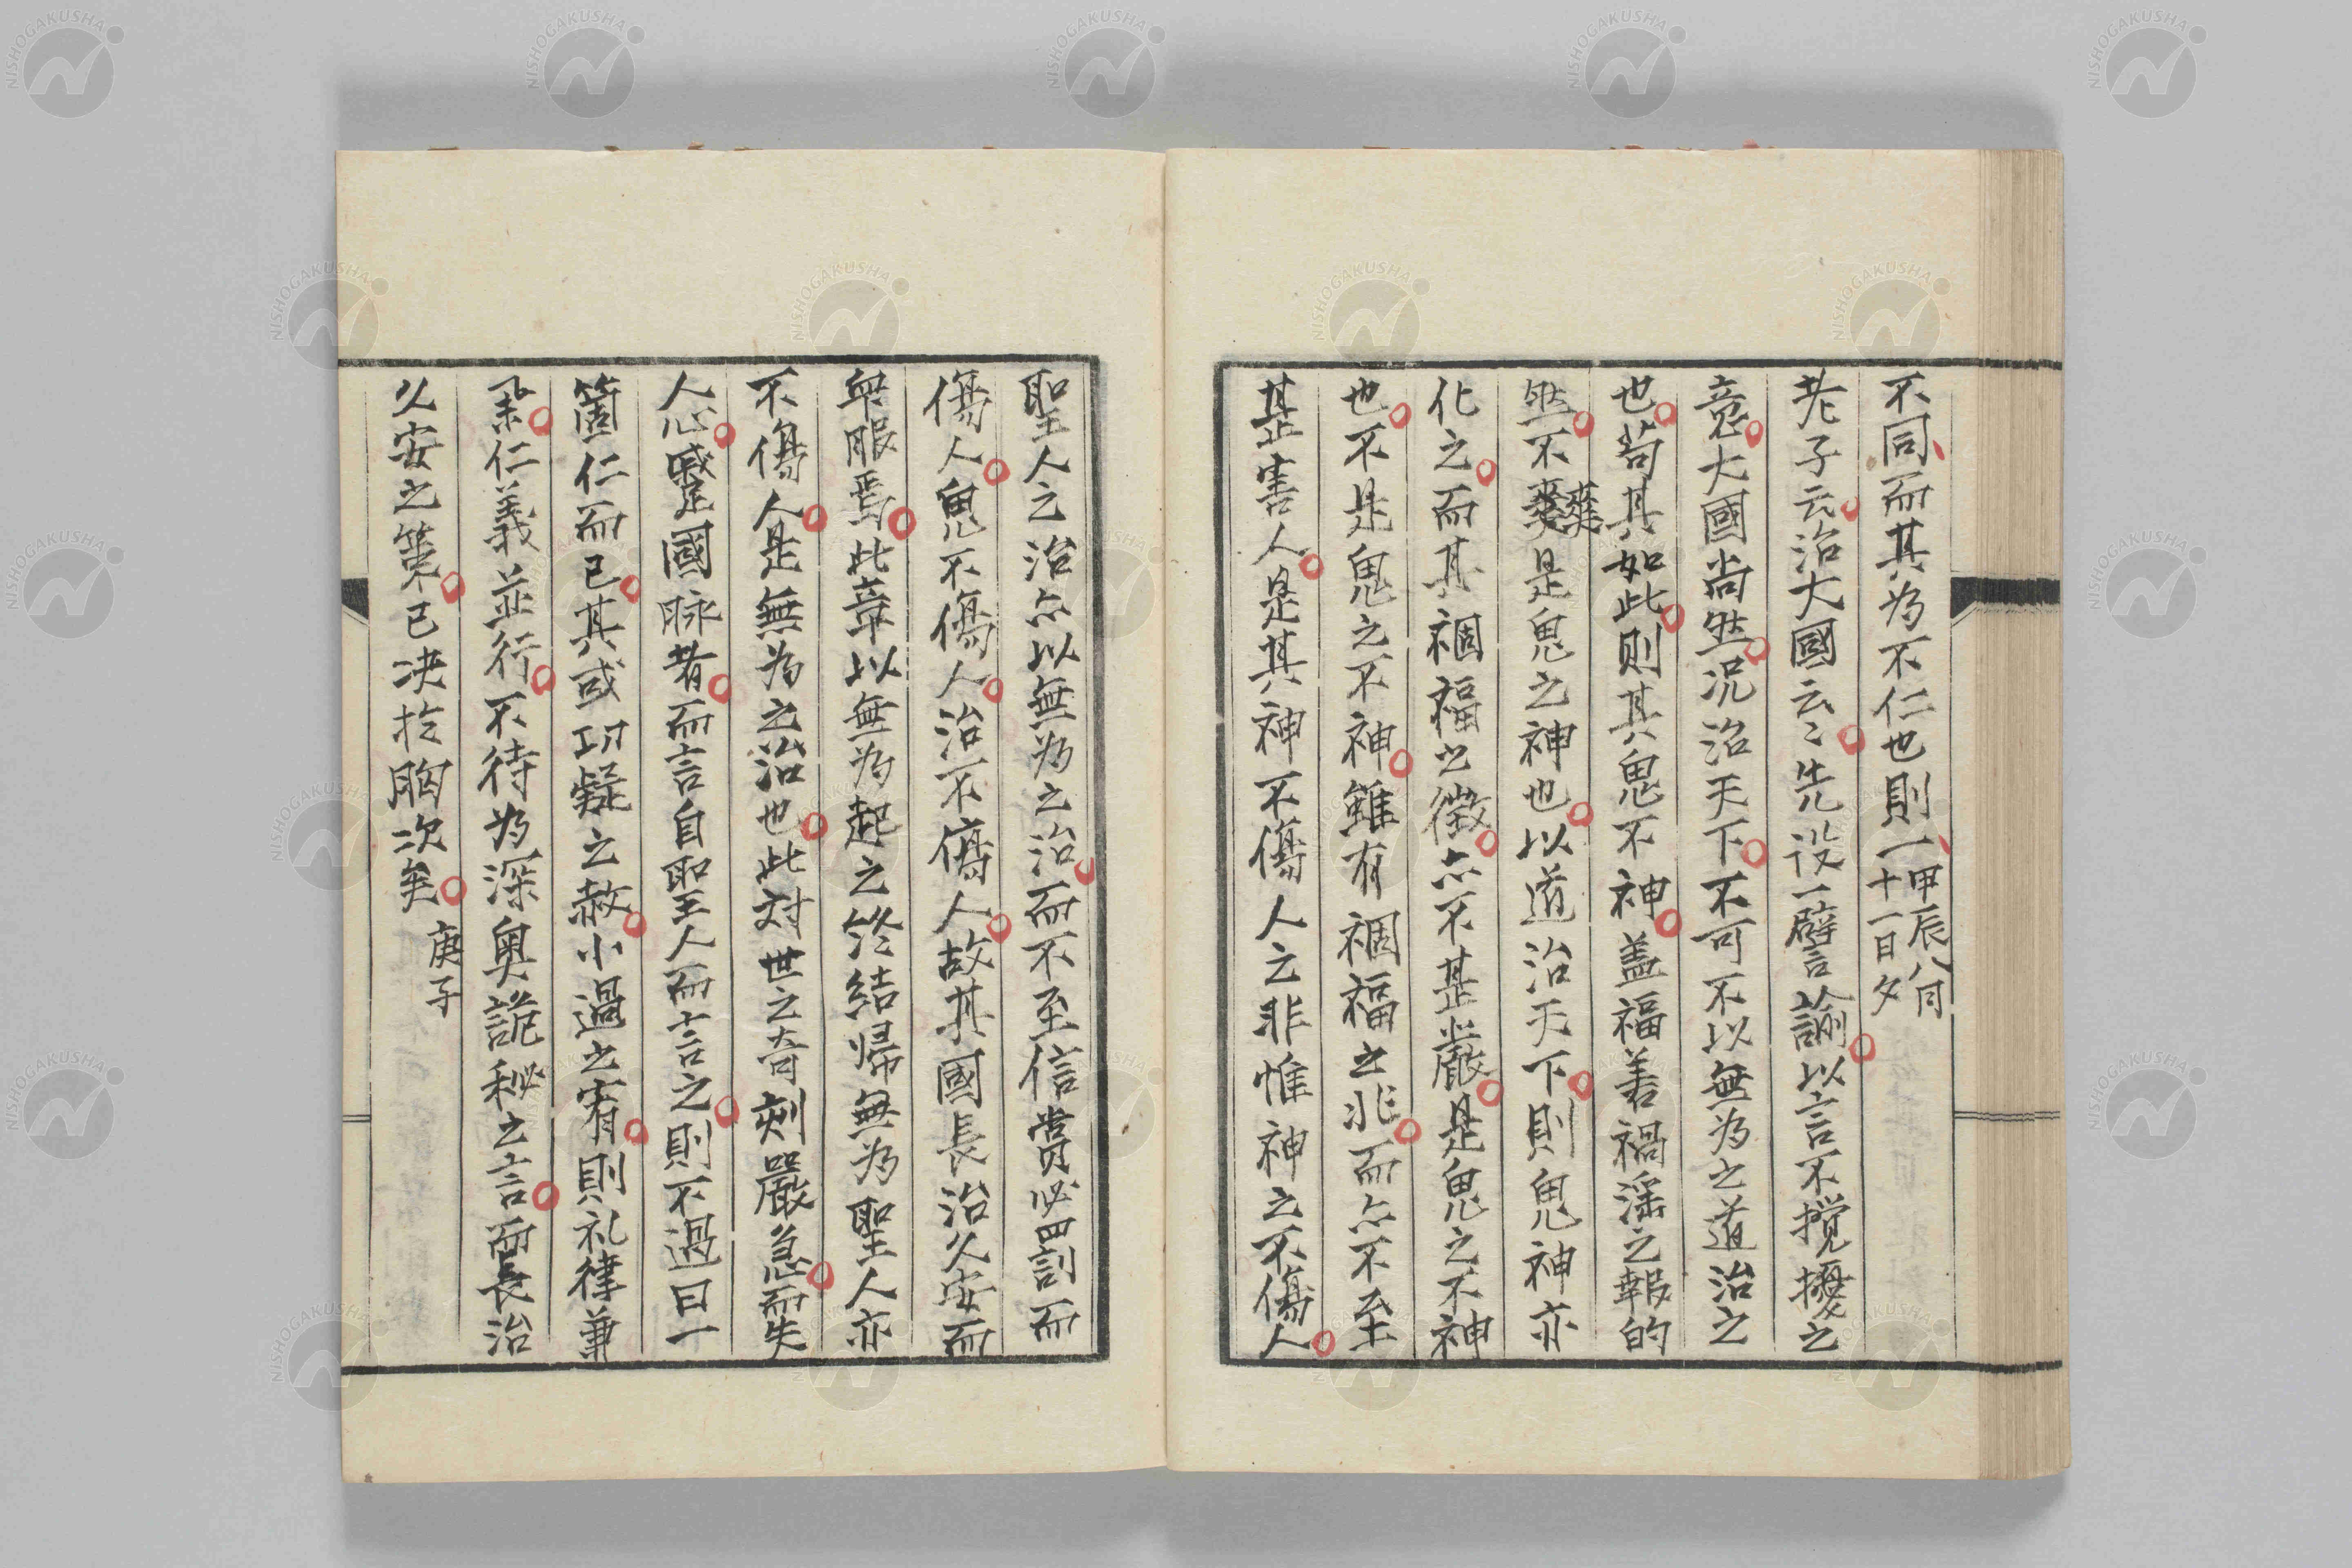 不同而其為不仁也則一甲辰八月
十一日夕
老子云治大國云〻先設一譬諭以言不攪擾之
意大國尚然況治天下不可不以無為之道治之
也苟其如此則其鬼不神盖福善禍淫之報的
然不爽是鬼之神也以道治天下則鬼神亦
化之而其禍福之徵亦不甚嚴是鬼之不神
也不是鬼之不神雖有禍福之非而亦不至
甚害人是其神不傷人之非惟神之不傷人
聖人之治亦以無為之治而不至信賞必罰而
傷人鬼不傷人治不傷人故其國長治久安而
衆服焉此章以無為起之終結帰無為聖人亦
不傷人是無為之治也此対世之奇刻嚴急而失
人心蹙國脉者而言自聖人而言之則不過曰一
箇仁而已其或功疑之赦小過之宥則礼律兼
仁義並行不待為深奥詭秘之言而長治
久安之策已决於胸次矣庚子